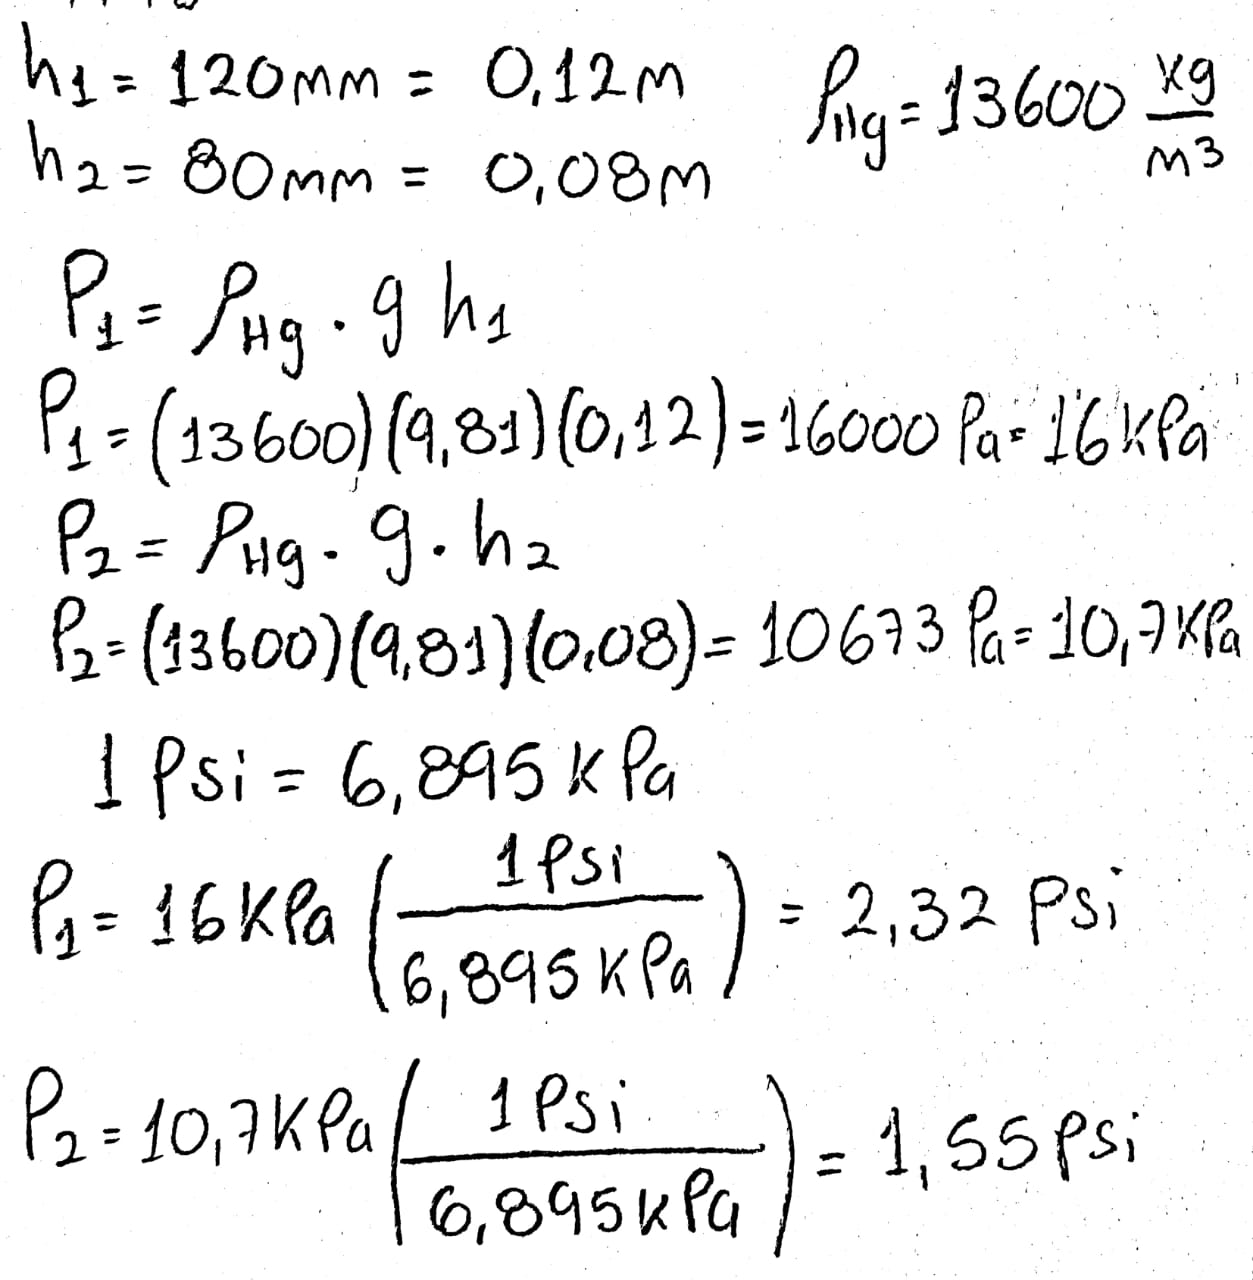 h1 = 120mm = 0,12m
ρHg = 13600 kg/m3
h2 = 80mm = 0,08m
P1 = ρHg · g h1
P1 = (13600)(9,81)(0,12) = 16000 Pa = 16 kPa
P2 = ρHg · g · h2
P2 = (13600)(9,81)(0,08) = 10673 Pa = 10,7 KPa
1 Psi = 6,895 kPa
P1 = 16 KPa (1 Psi / 6,895 KPa) = 2,32 Psi
P2 = 10,7 KPa (1 Psi / 6,895 kPa) = 1,55 psi